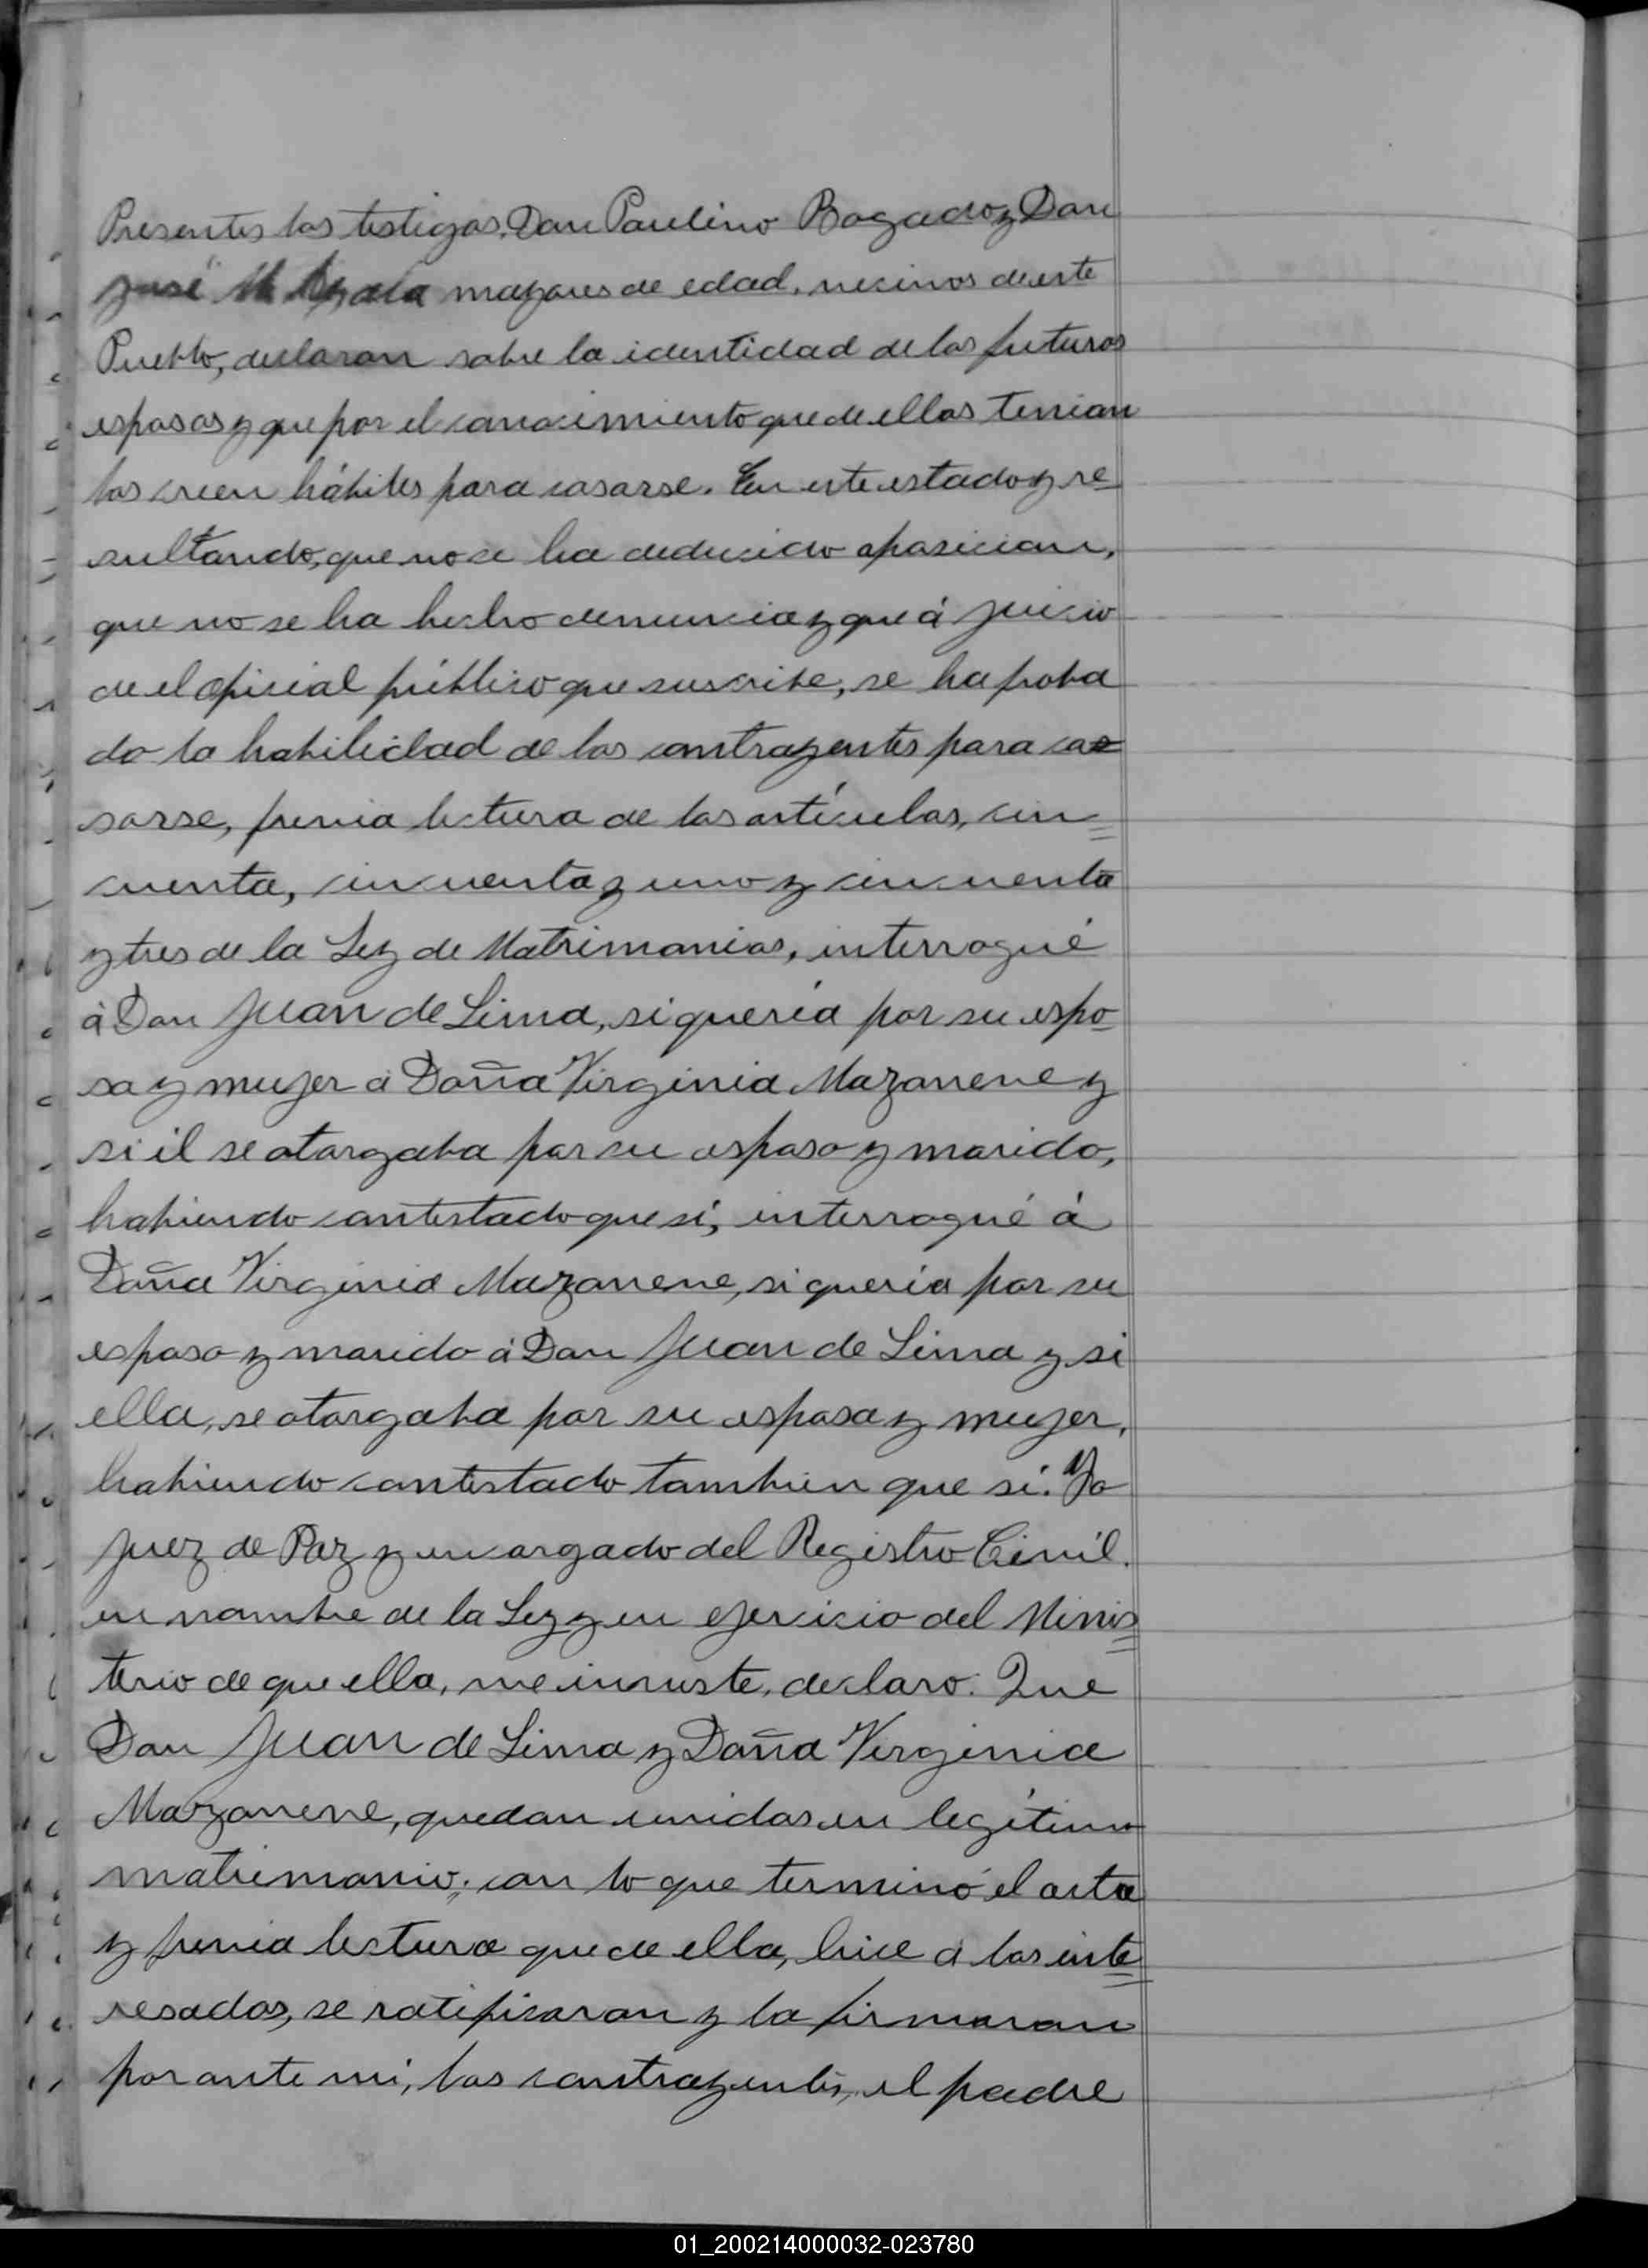 Presentes los testigos, Don Paulino Bogado y Don
José M Ayala mayores de edad, vecinos de este
Pueblo, declaran sobre la identidad de los futuros
esposos y que por el conocimiento que de ellos tenian
los creen hábiles para casarse. En este estado y re-
sultando, que no se ha deducido oposicion,
que no se ha hecho denuncia y que á juicio
de el oficial público que suscribe, se ha proba
do la habilidad de los contrayentes para ca=
sarse, previa lectura de los artículos, cin=
cuenta, cincuenta y uno y cincuenta
y tres de la Ley de Matrimonios, interrogué
á Don Juan de Lima, si quería por su espo-
sa y mujer á Doña Virginia Mazonene y
si él se otorgaba por su esposo y marido,
habiendo contestado que sí, interrogué á
Doña Virginia Mazonene, si quería por su
esposo y marido á Don Juan de Lima y si
ella, se otorgaba por su esposa y mujer,
habiendo contestado tambien que sí. Yo
Juez de Paz y encargado del Registro Civil.
en nombre de la Ley y en ejercicio del Minis=
terio de que ella, me inviste, declaro: Que
Don Juan de Lima y Doña Virginia
Mazonene, quedan unidos en legítimo
matrimonio; con lo que terminó el acta
y previa lectura que de ella, hice á los inte=
resados, se ratificaron y la firmaron
por ante mi, los contrayentes, el padre
01_200214000032-023780